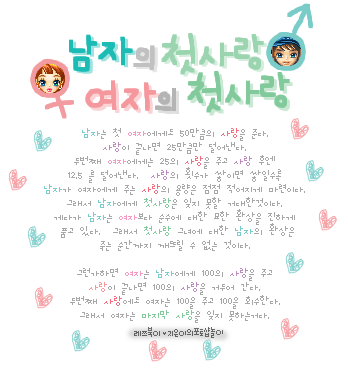 남자의 첫사랑
여자의 첫사랑
남자는 첫 여자에게 50만큼의 사랑을 준다.
사랑이 끝나면 25만큼만 덜어낸다.
두번째 여자에게는 25의 사랑을 주고 사랑 후엔
12.5 를 덜어낸다. 사랑의 횟수가 쌓이면 쌓일수록
남자가 여자에게 주는 사랑의 용량은 점점 적어지게 마련이다.
그래서 남자에게 첫사랑은 잊지 못할 거대한것이다.
게다가 남자는 여자보다 순수에 대한 묘한 환상을 진하게
품고 있다. 그래서 첫사랑 그녀에 대한 남자의 환상은
죽는 순간까지 깨트릴 수 없는 것이다..
그런가하면 여자는 남자에게 100의 사랑을 주고
사랑이 끝나면 100의 사랑을 거두어 간다.
두번째 사랑에도 여자는 100을 주고 100을 회수한다.
그래서 여자는 마지막 사랑을 잊지 못하는거다.
레쯔북이♥지은이의포토샵놀이